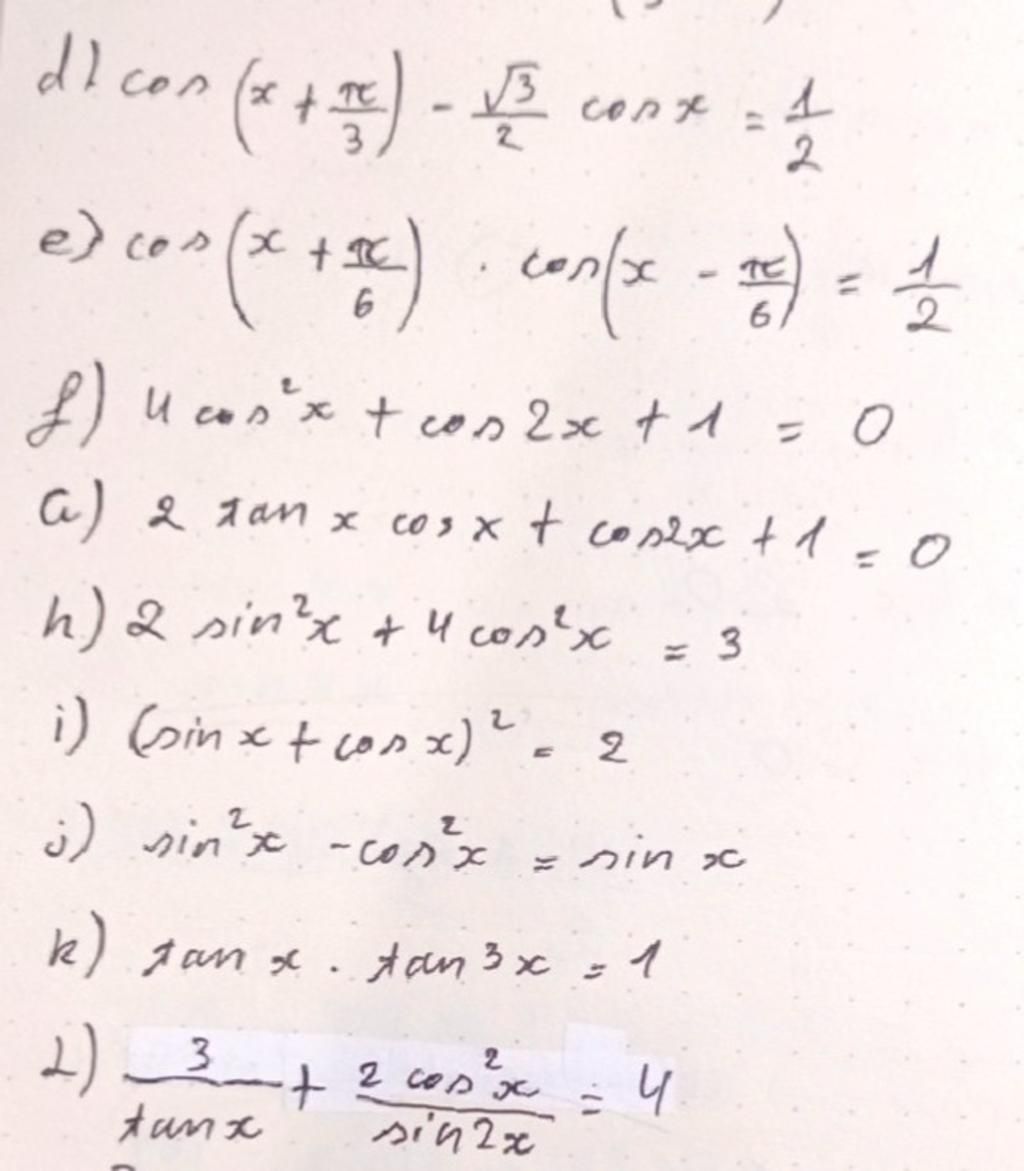 d) cos (x + π/3) - √3/2 cos x = 1/2
e) cos (x + π/6) . cos (x - π/6) = 1/2
f) 4 cos²x + cos 2x + 1 = 0
G) 2 tan x cos x + cos2x + 1 = 0
h) 2 sin²x + 4 cos²x = 3
i) (sin x + cos x)² = 2
j) sin²x - cos²x = sin x
k) tan x . tan 3x = 1
L) 3/tan x + 2 cos²x/sin 2x = 4